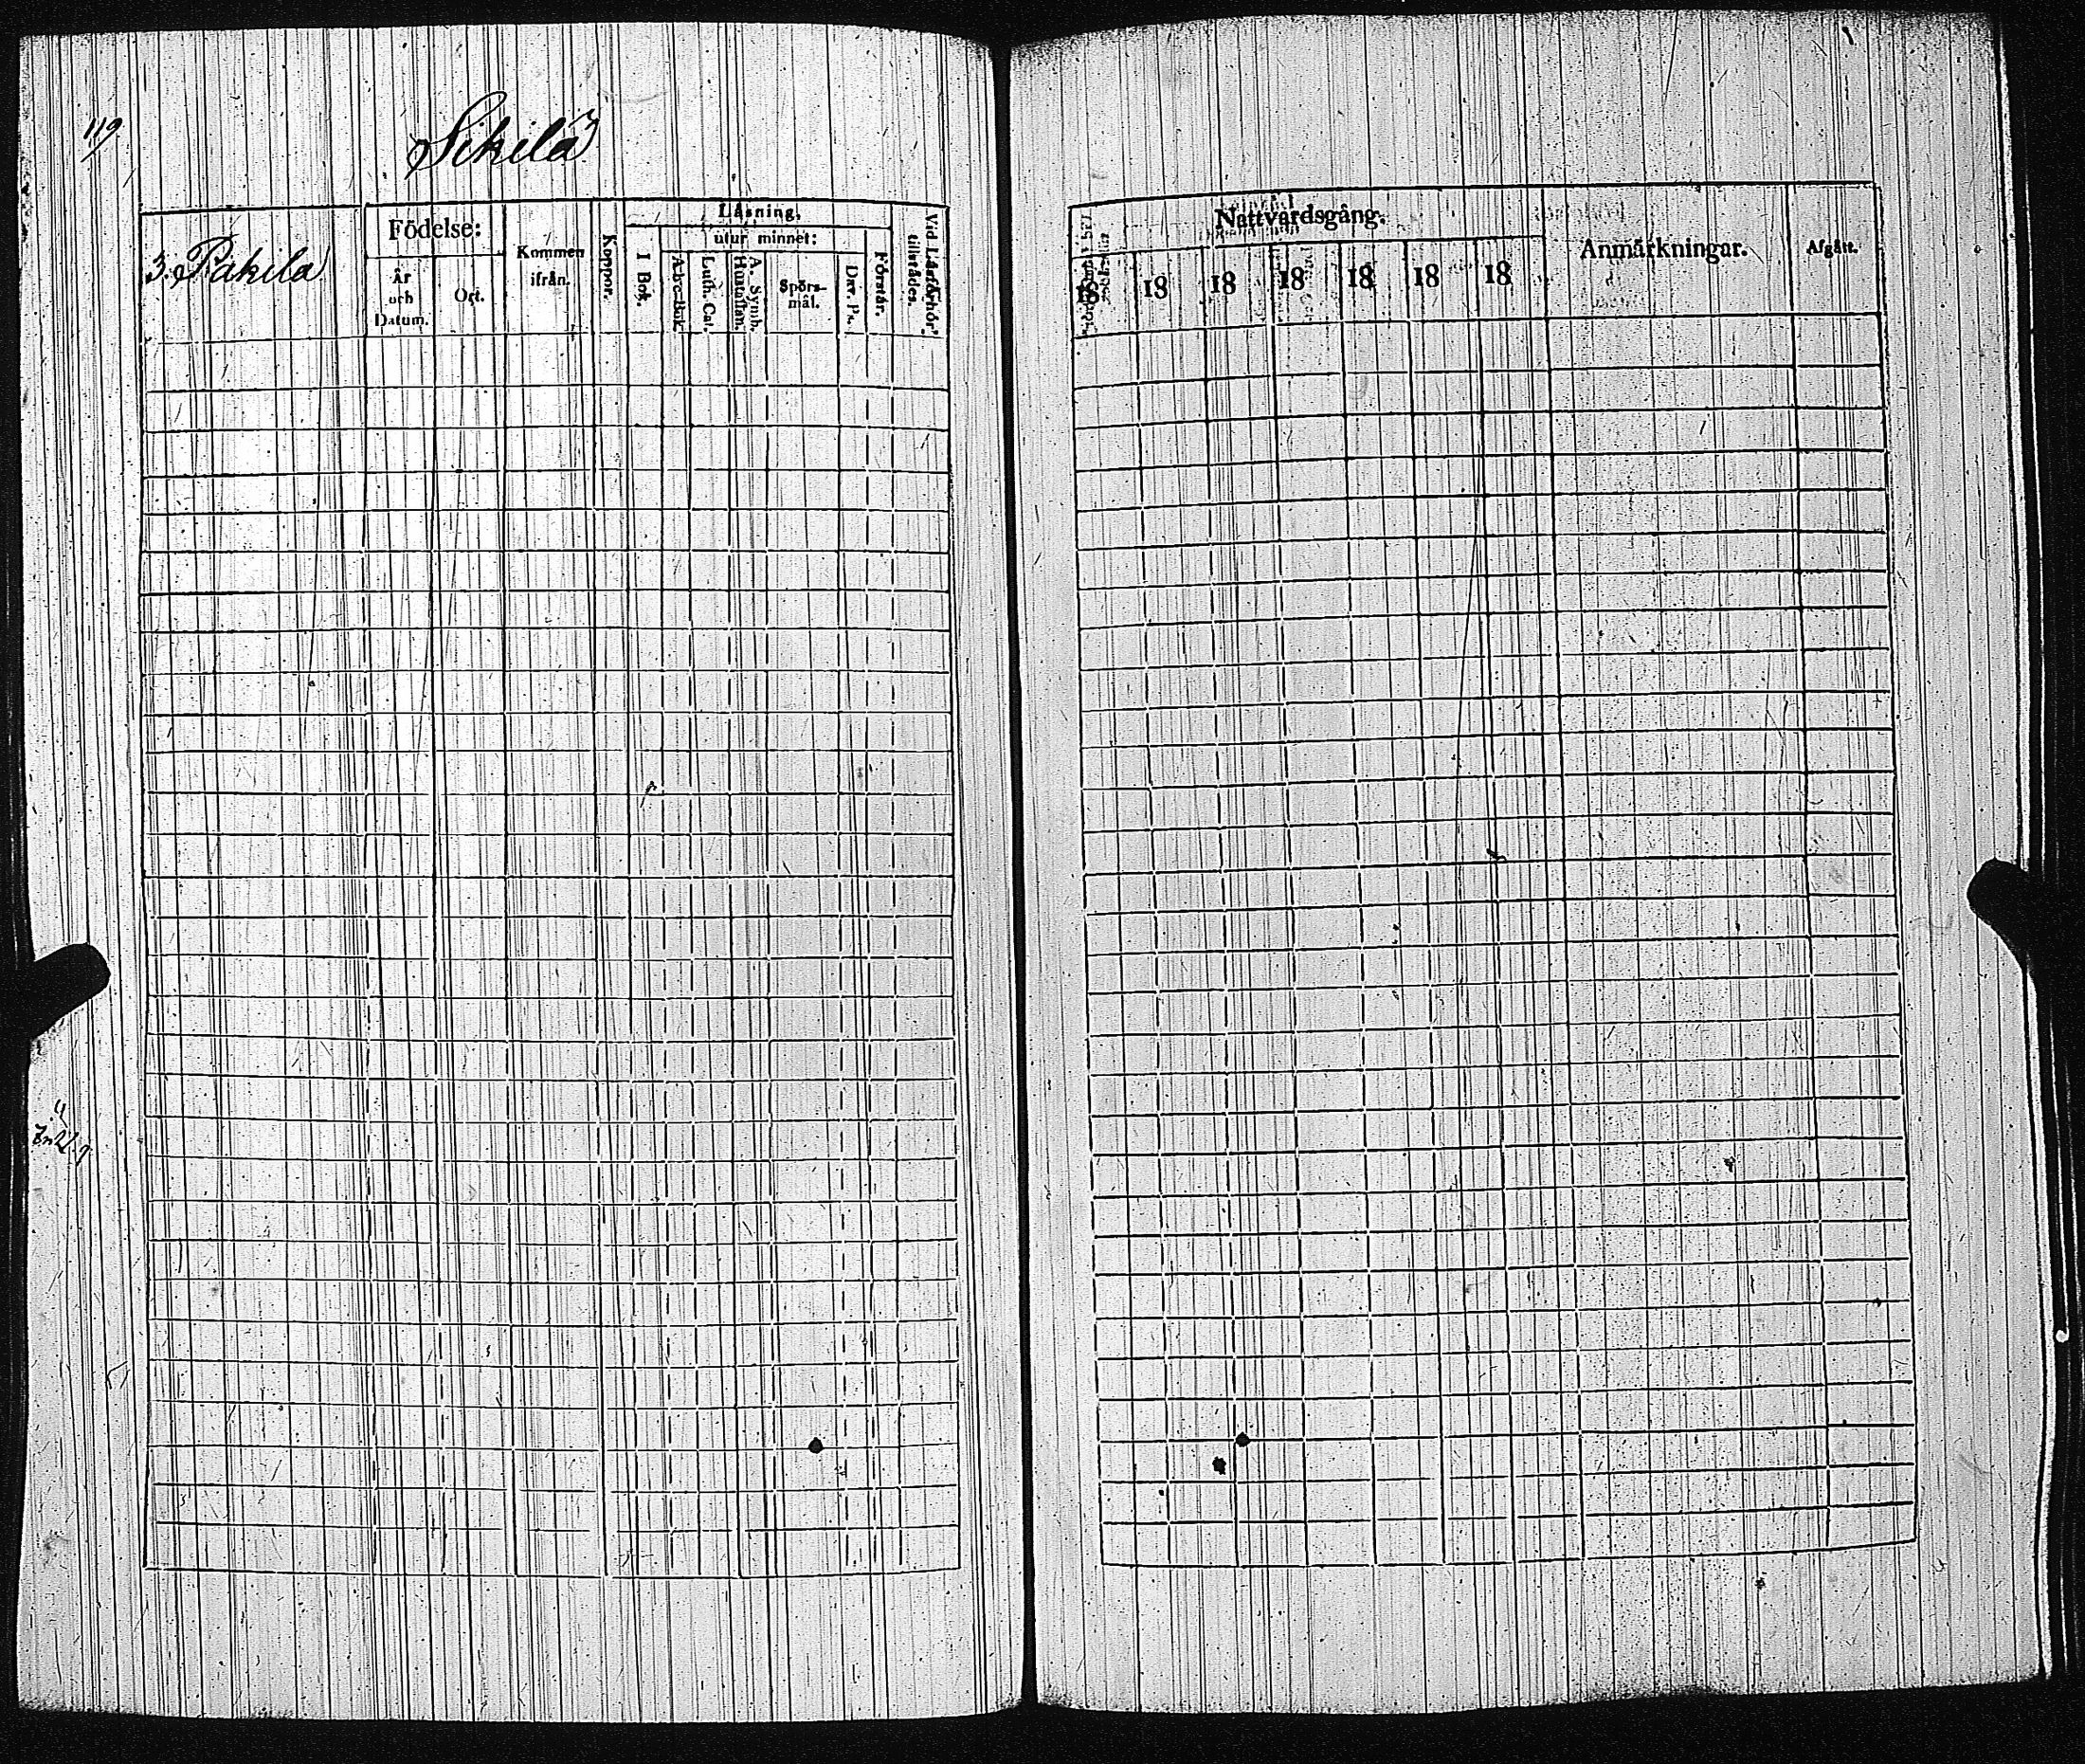 119
Sikilä
3. Pakila
Födelse:
År
och
Datum.
Ort.
Kommen
ifrån.
Koppor.
Läsning,
utur minnet:
I Bok.
A-b-c-Bok.
Luth. Cat.
A. Symb.
Hustaflan.
Spörs-
mål.
Dav. Ps.
Förstår.
Vid Läsförhör
tillstädes.
Nattvardsgång.
18
18
18
18
18
18
18
Anmärkningar.
Afgått.